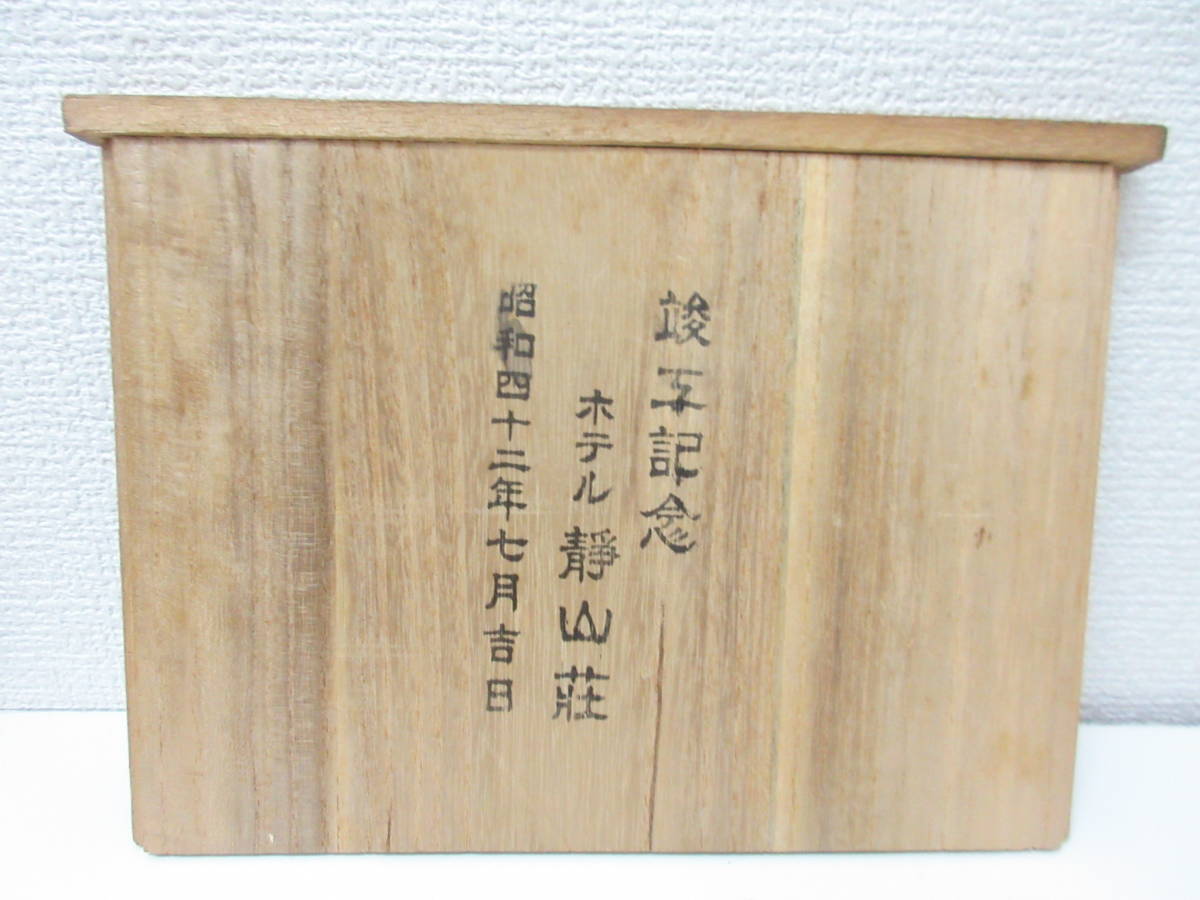 竣工記念
ホテル靜山荘
昭和四十二年七月吉日